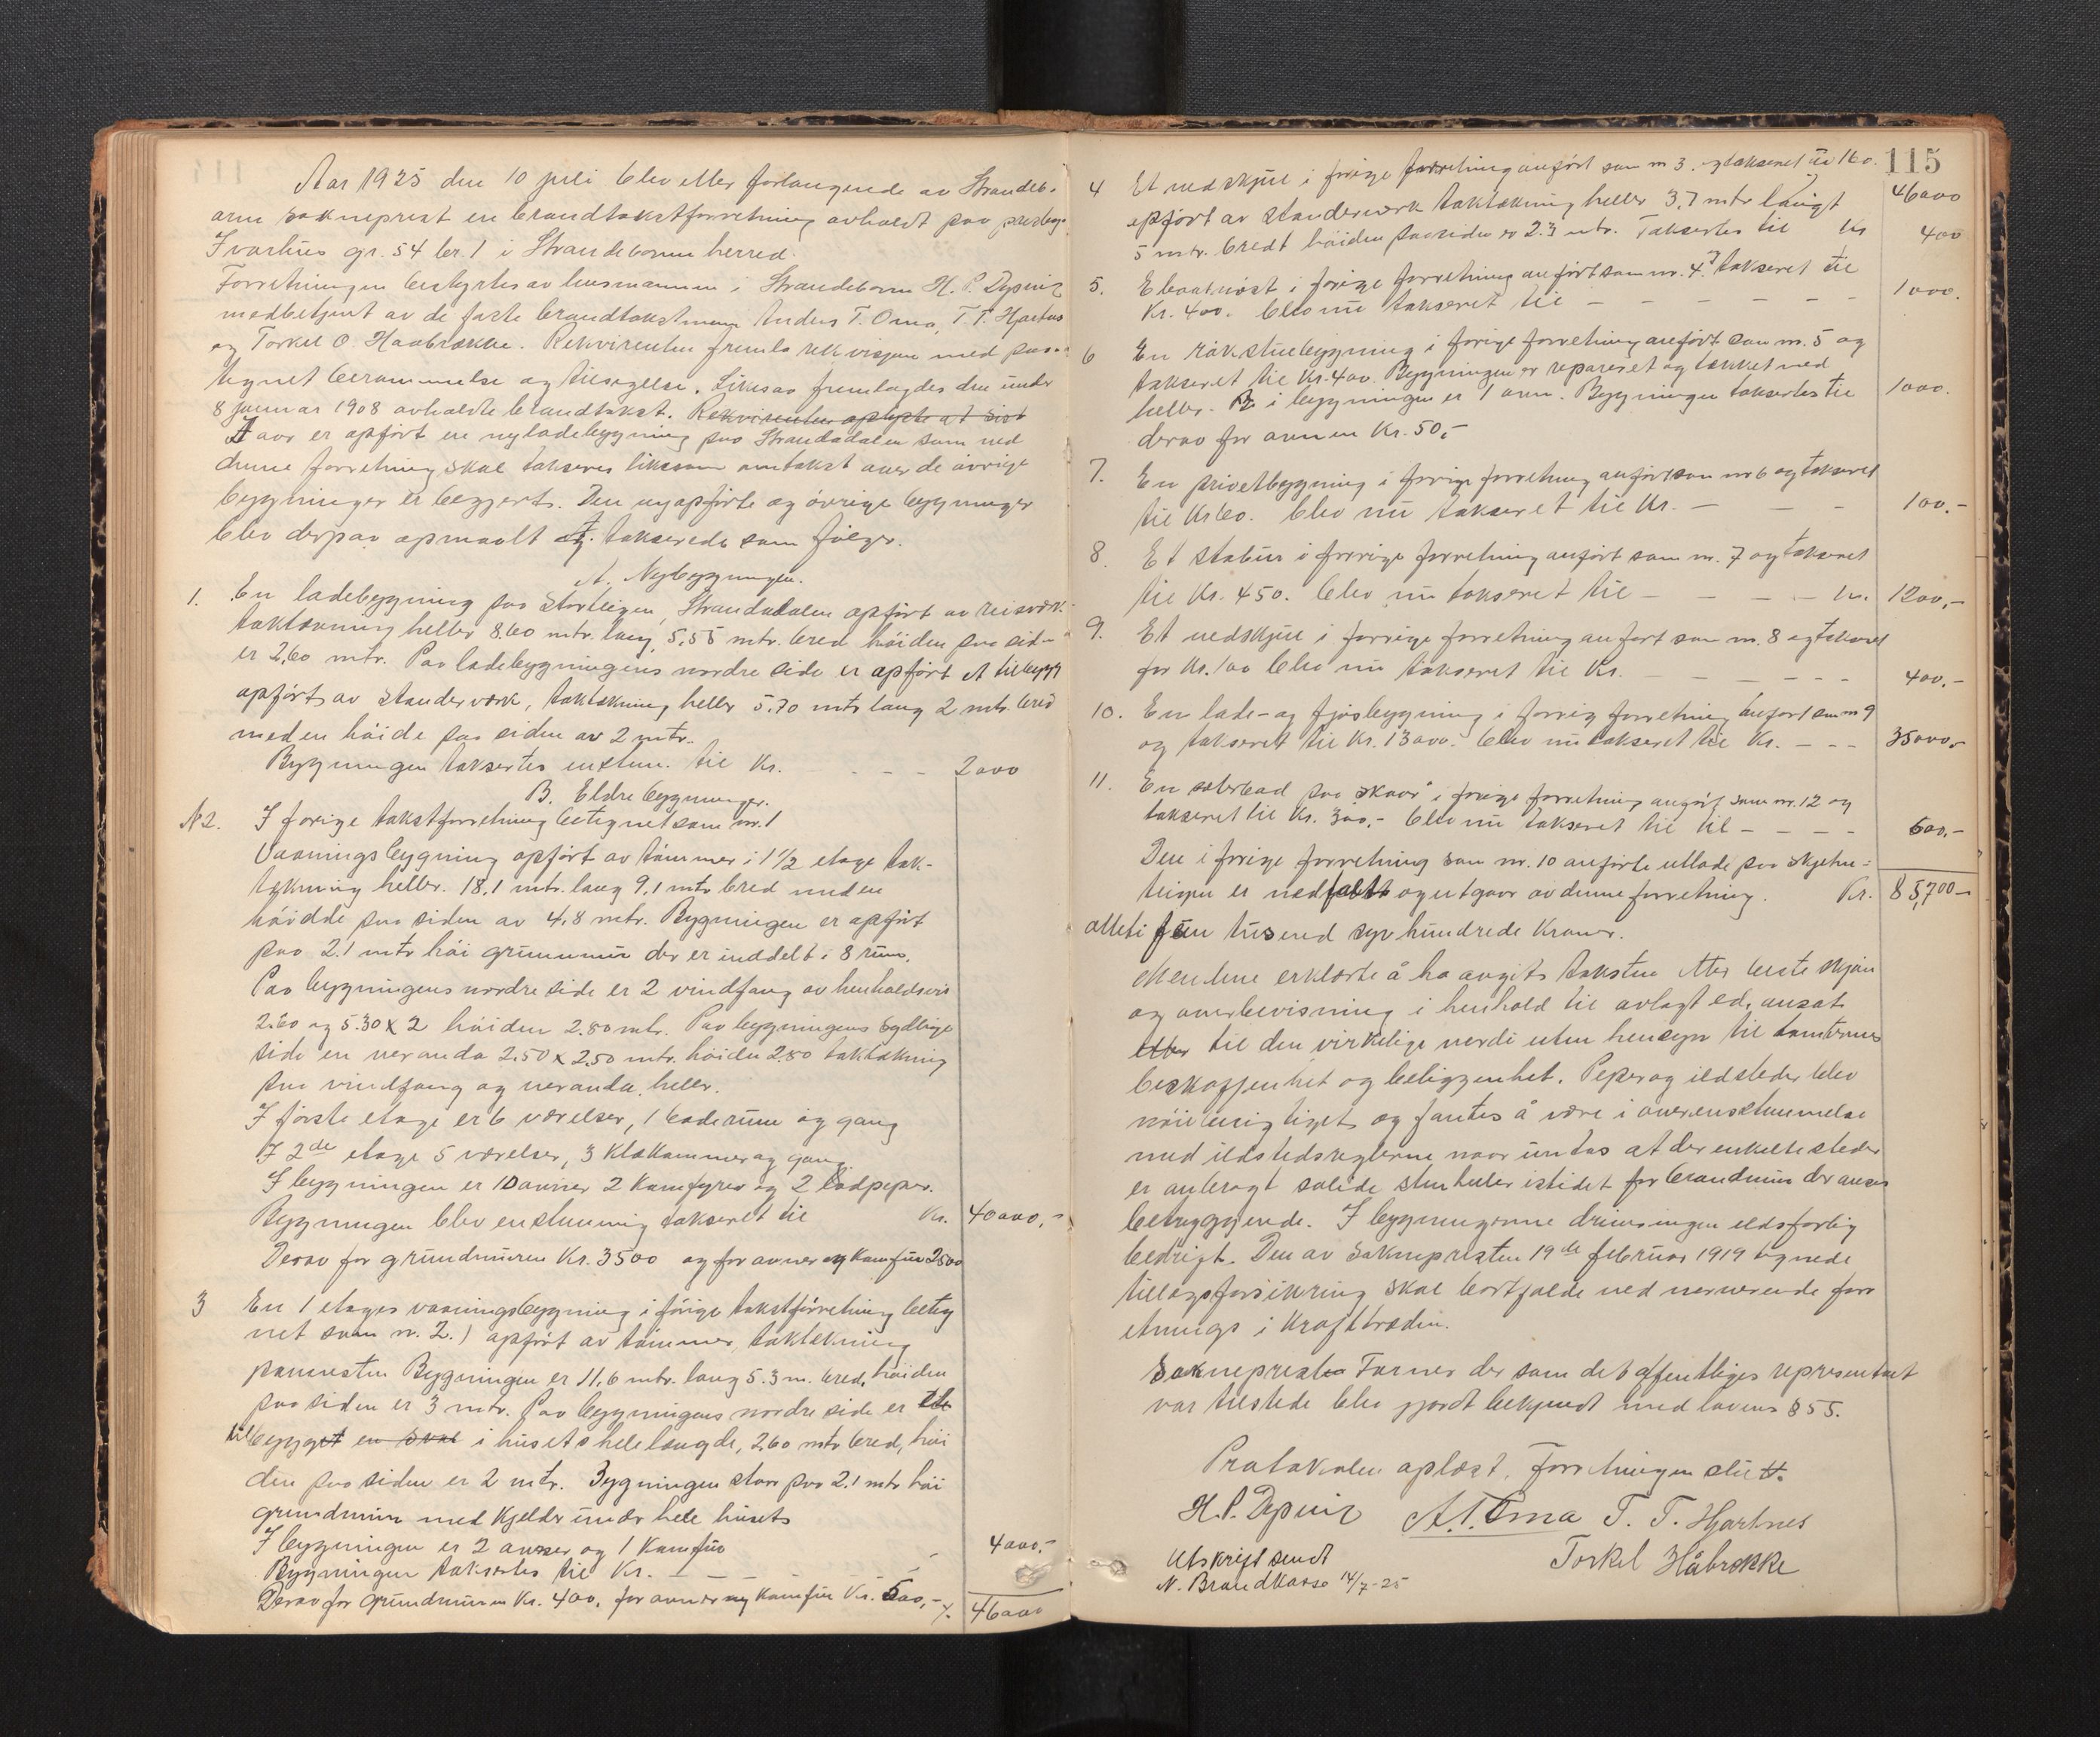 Aar 1925 den 10 juli blev etter forlangende av Strandeb-
arm sokneprest en brandtakstforretning avholdt paa prestegr.
Ivarhus gr. 54 br. 1 i Strandebarm herred.
Forretningen bestyrtes av lensmannen i Strandebarm H. P. Dysvik
medbetjent av de faste brandtakstmenn Anders T. Oma, T. T. Hjartnes
og Torkel O. Haabrekke. Rekvirenten fremla rekvisjon med paa-
tegnet berammelse og tilsigelse. Likesaa fremlagdes den under
8 januar 1908 avholdte brandtakst. Rekvirenten oplyste at sist
I aar er opført en ny ladebygning paa Strandadalen som ved
denne forretning skal takseres likesom omtakst over de øvrige
bygninger er begjært. Den nyopførte og øvrige bygninger
blev derpaa opmaalt og takserede som følger.
A. Nybygningen.
1. En ladebygning paa Storteigen, Strandadalen opført av reisverk
taktækning heller 8.60 mtr. lang, 5,55 mtr. bred høiden paa sid-
er 2,60 mtr. Paa ladebygningens nordre side er opført et tilbygg
opført av standerværk, taktækning heller 5.70 mtr lang 2 mtr. bred
med en høide paa siden av 2 mtr.
Bygningen taksertes enstem. til Kr. - - - 2000
B. Eldre bygninger.
N 2. I forige takstforretning betegnet som nr. 1
Vaaningsbygning opført av tømmer i 1 1/2 etage tak-
tækning heller. 18,1 mtr. lang 9,1 mtr bred med en
høidde paa siden av 4,8 mtr. Bygningen er opført
paa 2.1 mtr høi grunnmur der er inddelt i 8 rum.
Paa bygningens nordre side er 2 vindfang av henholdsvis
2.60 og 5.30 x 2 høiden 2.80 mtr. Paa bygningens sydlige
side en veranda 2.50 x 2,50 mtr. høiden 2.80 taktækning
paa vindfang og veranda heller.
I første etage er 6 værelser, 1 baderum og gang
I 2de etage 5 værelser, 3 klækammer og gang
I bygningen er 10 ovner 2 kamfyrer og 2 lodpeper.
Bygningen blev enstemmig taksert til Kr. 40000,-
Derav for grundmuren Kr. 3500 og for ovner og kamfur 2500
3 En 1 etages vaaningsbygning i forige takstforretning beteg
net som nr. 2.) opført av tømmer, taktækning
pannesten Bygningen er 11,6 mtr. lang 5.3 m. bred, høiden
paa siden er 3 mtr. Paa bygningens nordre side er
tilbygget en sval i husets hele længde, 2,60 mtr bred, høi
den paa siden er 2 mtr. Bygningen staar paa 2.1 mtr høi
grundmur med kjelder under hele huset
I bygningen er 2 ovner og 1 kamfur
Bygningen taksertes til Kr. - - - 4000,-
Derav for grundmuren Kr. 400, for ovner og kamfur Kr. 500,-
46000
115
4 Et vedskjul i forige forretning anført som nr 3. og taksert til 160.
46000
opført av standerverk taktækning heller 3,7 mtr langt
5 mtr. bredt høiden paa siden er 2.3 mtr. Taksertes til Kr 400
5. E baatnøst i forige forretning anført som nr. 4 takseret til
Kr. 400. blev nu takseret til - - - - - - 1000.
6 En røkstuebygning i forige forretning anført som nr. 5 og
takseret til Kr. 400 Bygningen er reparert og tækket med
heller. I bygningen er 1 ovn. Bygningen taksertes til 1000.
derav for ovnen Kr. 50,-
7. En privetbygning i forige forretning anført som nr 6 og takseret
til Kr 60. blev nu takseret til Kr. - - - 100.-
8. Et stabur i forrige forretning anført som nr. 7 og takseret
til Kr. 450. blev nu takseret til - - - - kr. 1200,-
9. Et vedskjul i forrige forretning anført som nr. 8 og takseret
for Kr. 100 blev nu takseret til Kr. - - - - - - 400.-
10. En lade- og fjøsbygning i forrig forretning anført som nr 9
og takseret til Kr. 13000. blev nu takseret til Kr. - - - 35000,-
11. En sæterbod paa "Skaar" i forige forretning anført som nr. 12 og
takseret til Kr. 300.- blev nu takseret til til - - - - 600,-
Den i forige forretning som nr. 10 anførte utlade paa Skjehn-
teigen er nedfaldt og utgaar av denne forretning. Kr. 85,700-
otteti fem tusend syv hundrede Kroner.
Mennene erklærte å ha avgit taksten etter beste skjøn
og overbevisning i henhold til avlagt ed, ansat
etter til den virkelige verdi uten hensyn til tomternes
beskaffenhet og beliggenhet. Peper og ildsteder blev
nøie besigtiget og fantes å være i overensstemmelse
med ildstedsreglerne naar undtas at der enkelte steder
er anbragt solide stenheller istedet for brandmur der anses
betryggende. I bygningerne drives ingen ildsfarlig
bedrift. Den av Soknepresten 19de februar 1919 tegnede
tillægsforsikring skal bortfalde ved nerverende forr
etnings i krafttræden.
Soknepresten Farner der som det offentliges representant
var tilstede blev gjordt bekjendt med lovens § 55.
Protokollen oplæst, forretningen slutt.
H. P. Dysvik A. T. Oma T. T. Hjartnes
Torkel Håbrekke
Utskrift sendt
N. Brandkasse 14/7-25